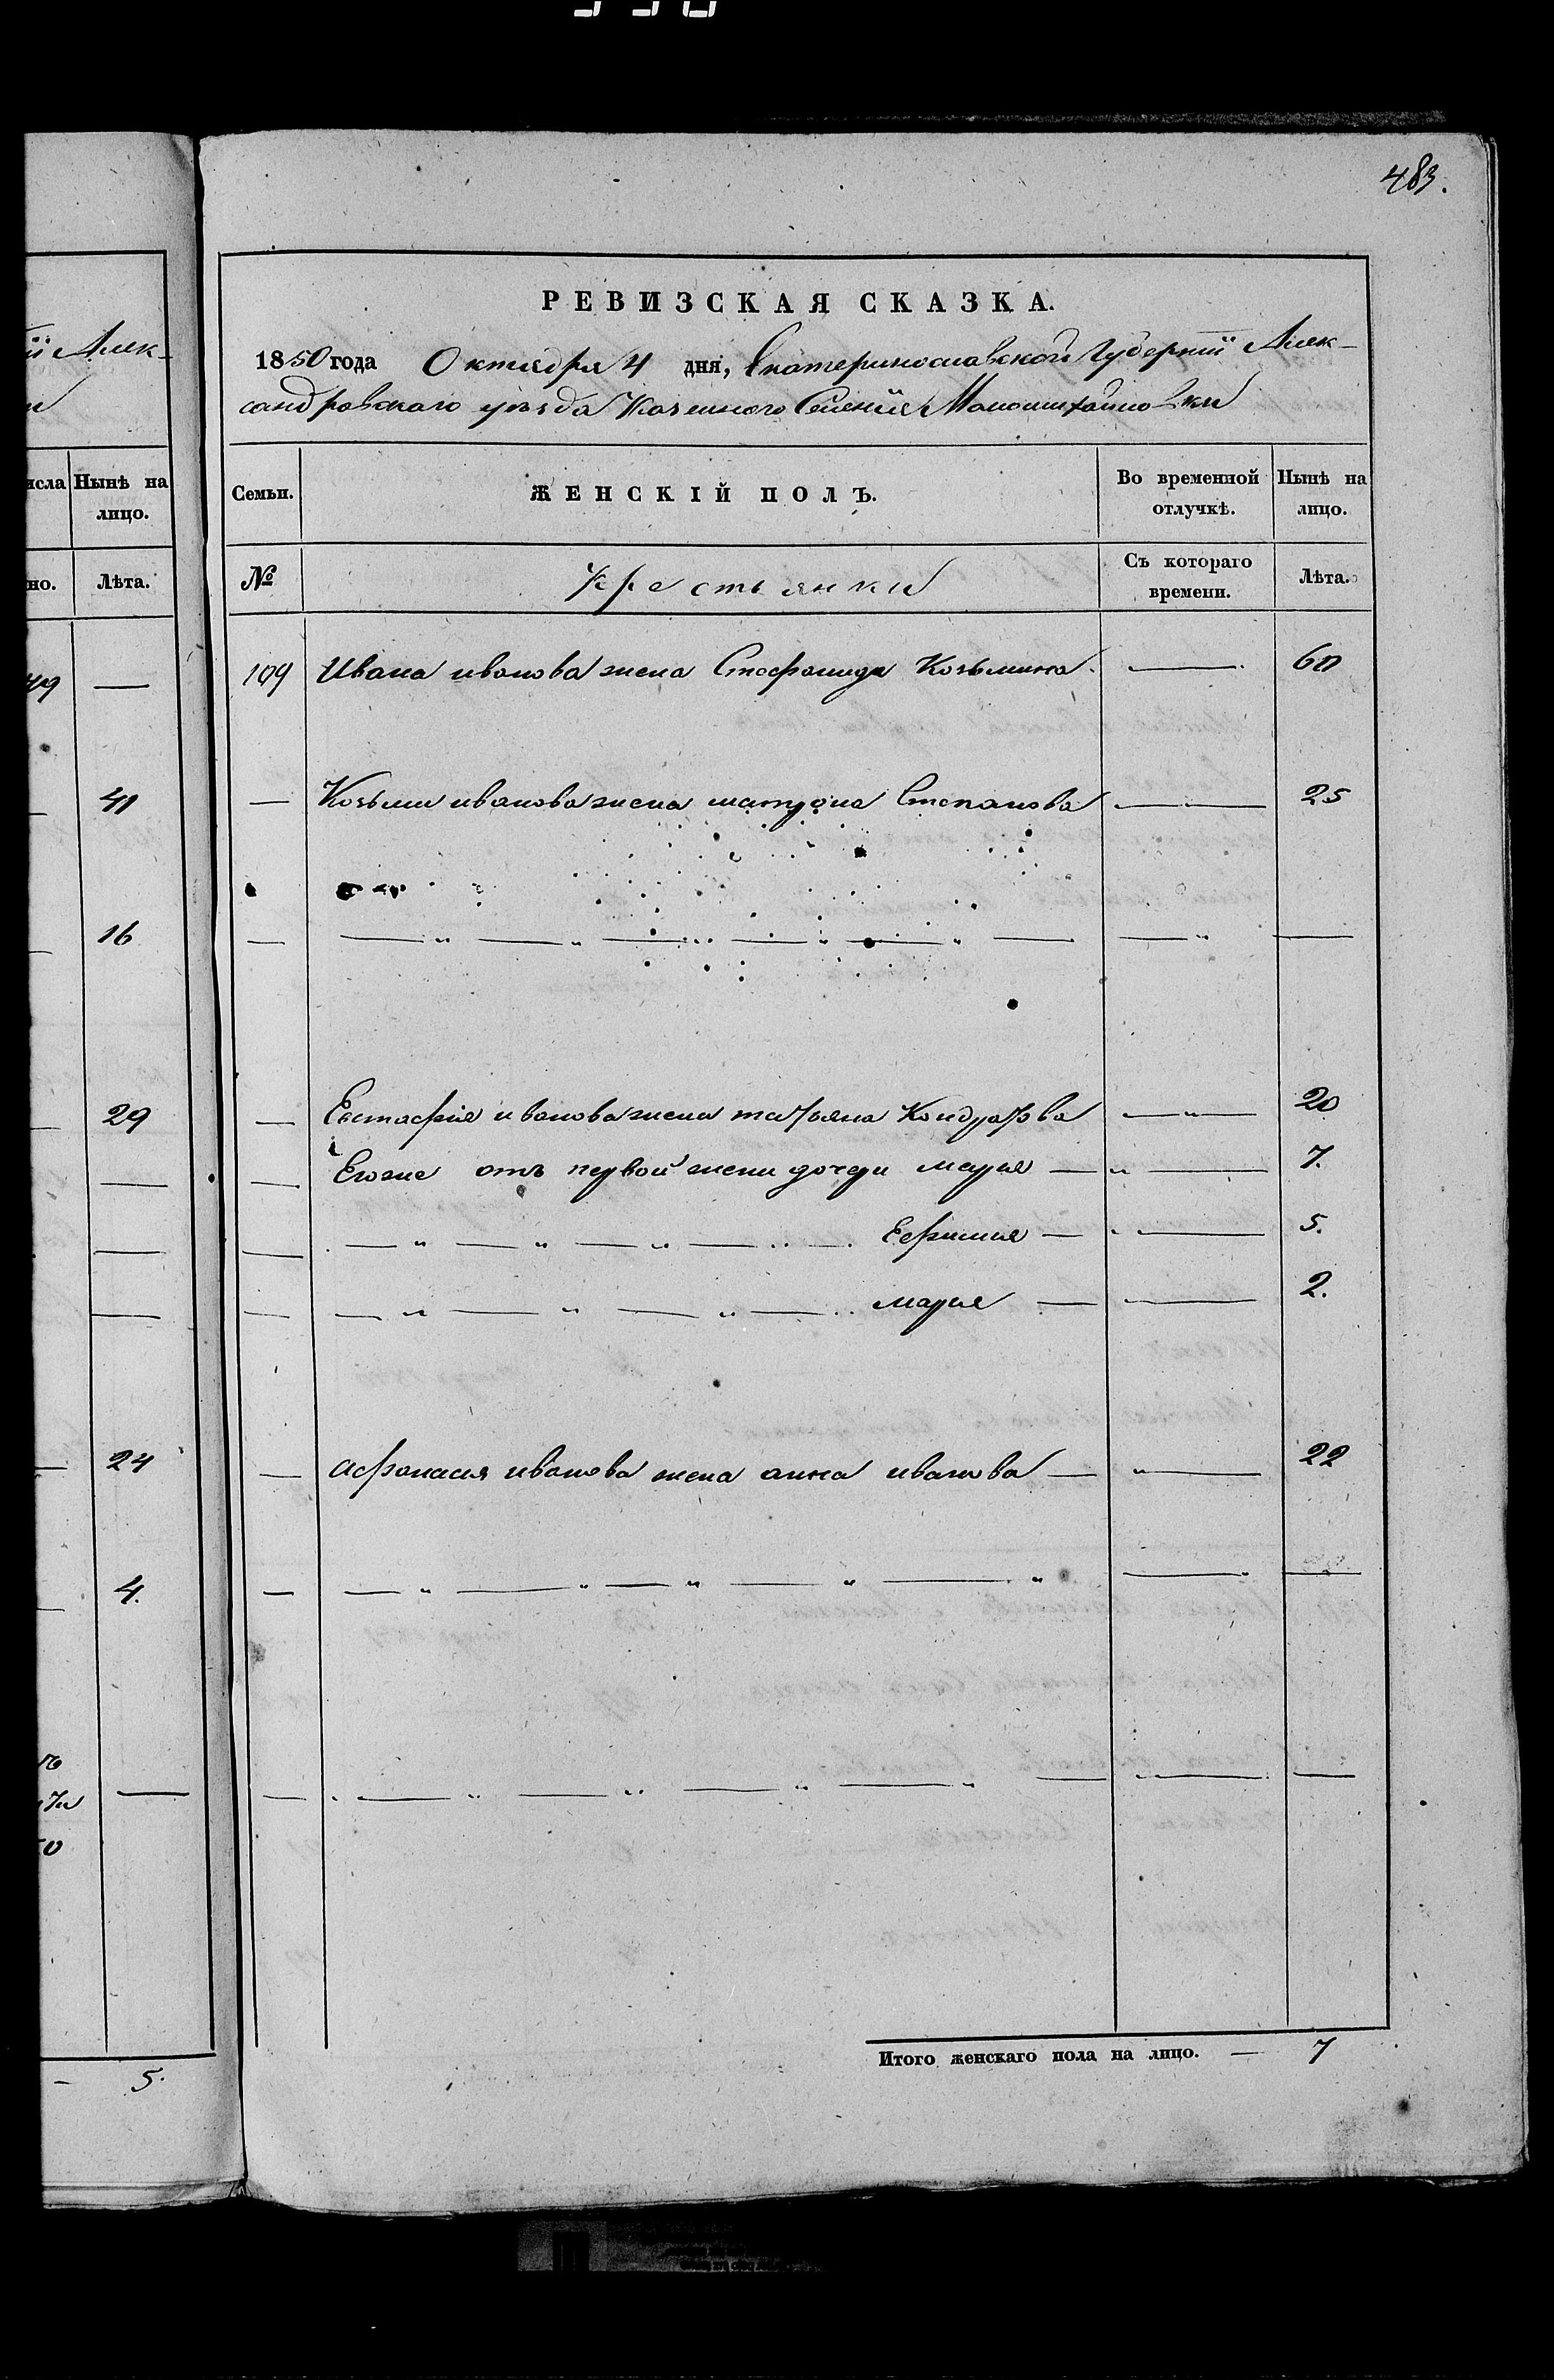 483.
РЕВИЗСКАЯ СКАЗКА.
1850 года Октября 4 дня, Екатеринославской Губернии Алек-
сандровскаго уѣзда Казеннаго Селенія Маломихайловки
Семьи. ЖЕНСКІЙ ПОЛЪ. Во временной отлучкѣ. Нынѣ на лицо.
№ Крестьянки Съ котораго времени. Лѣта.
109 Ивана иванова жена Стефанида Козьмина. — 60
— Козьми иванова жена матрона Степанова — 25
— Евстафия иванова жена татьяна Кондратова — 20
— Егоже отъ первой жени дочери марья — 7.
— Ефимия — 5.
— марья — 2.
— афанасия иванова жена анна иванова — 22
Итого женскаго пола на лицо. — 7
Алек-
исла Нынѣ на лицо.
но. Лѣта.
49 —
41
16
29
24
4.
5.